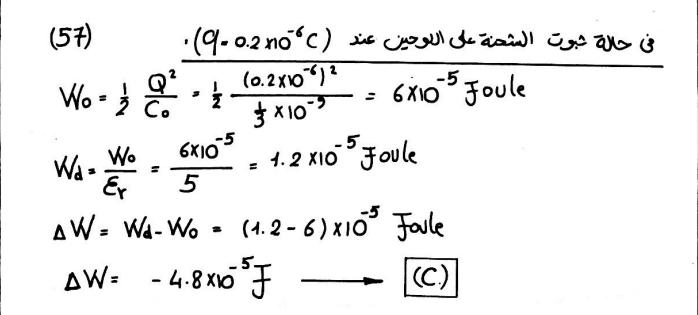 (57)
في حالة ثبوت الشحنة على اللوحين عند (q = 0.2 x10^-6 C).
W₀ = 1/2 Q²/C₀ = 1/2 (0.2x10^-6)²/(1/3 x10^-9) = 6x10^-5 Joule
Wd = W₀/Ɛr = 6x10^-5/5 = 1.2 x10^-5 Joule
ΔW = Wd - W₀ = (1.2 - 6) x10^-5 Joule
ΔW = - 4.8 x10^-5 J → (C.)